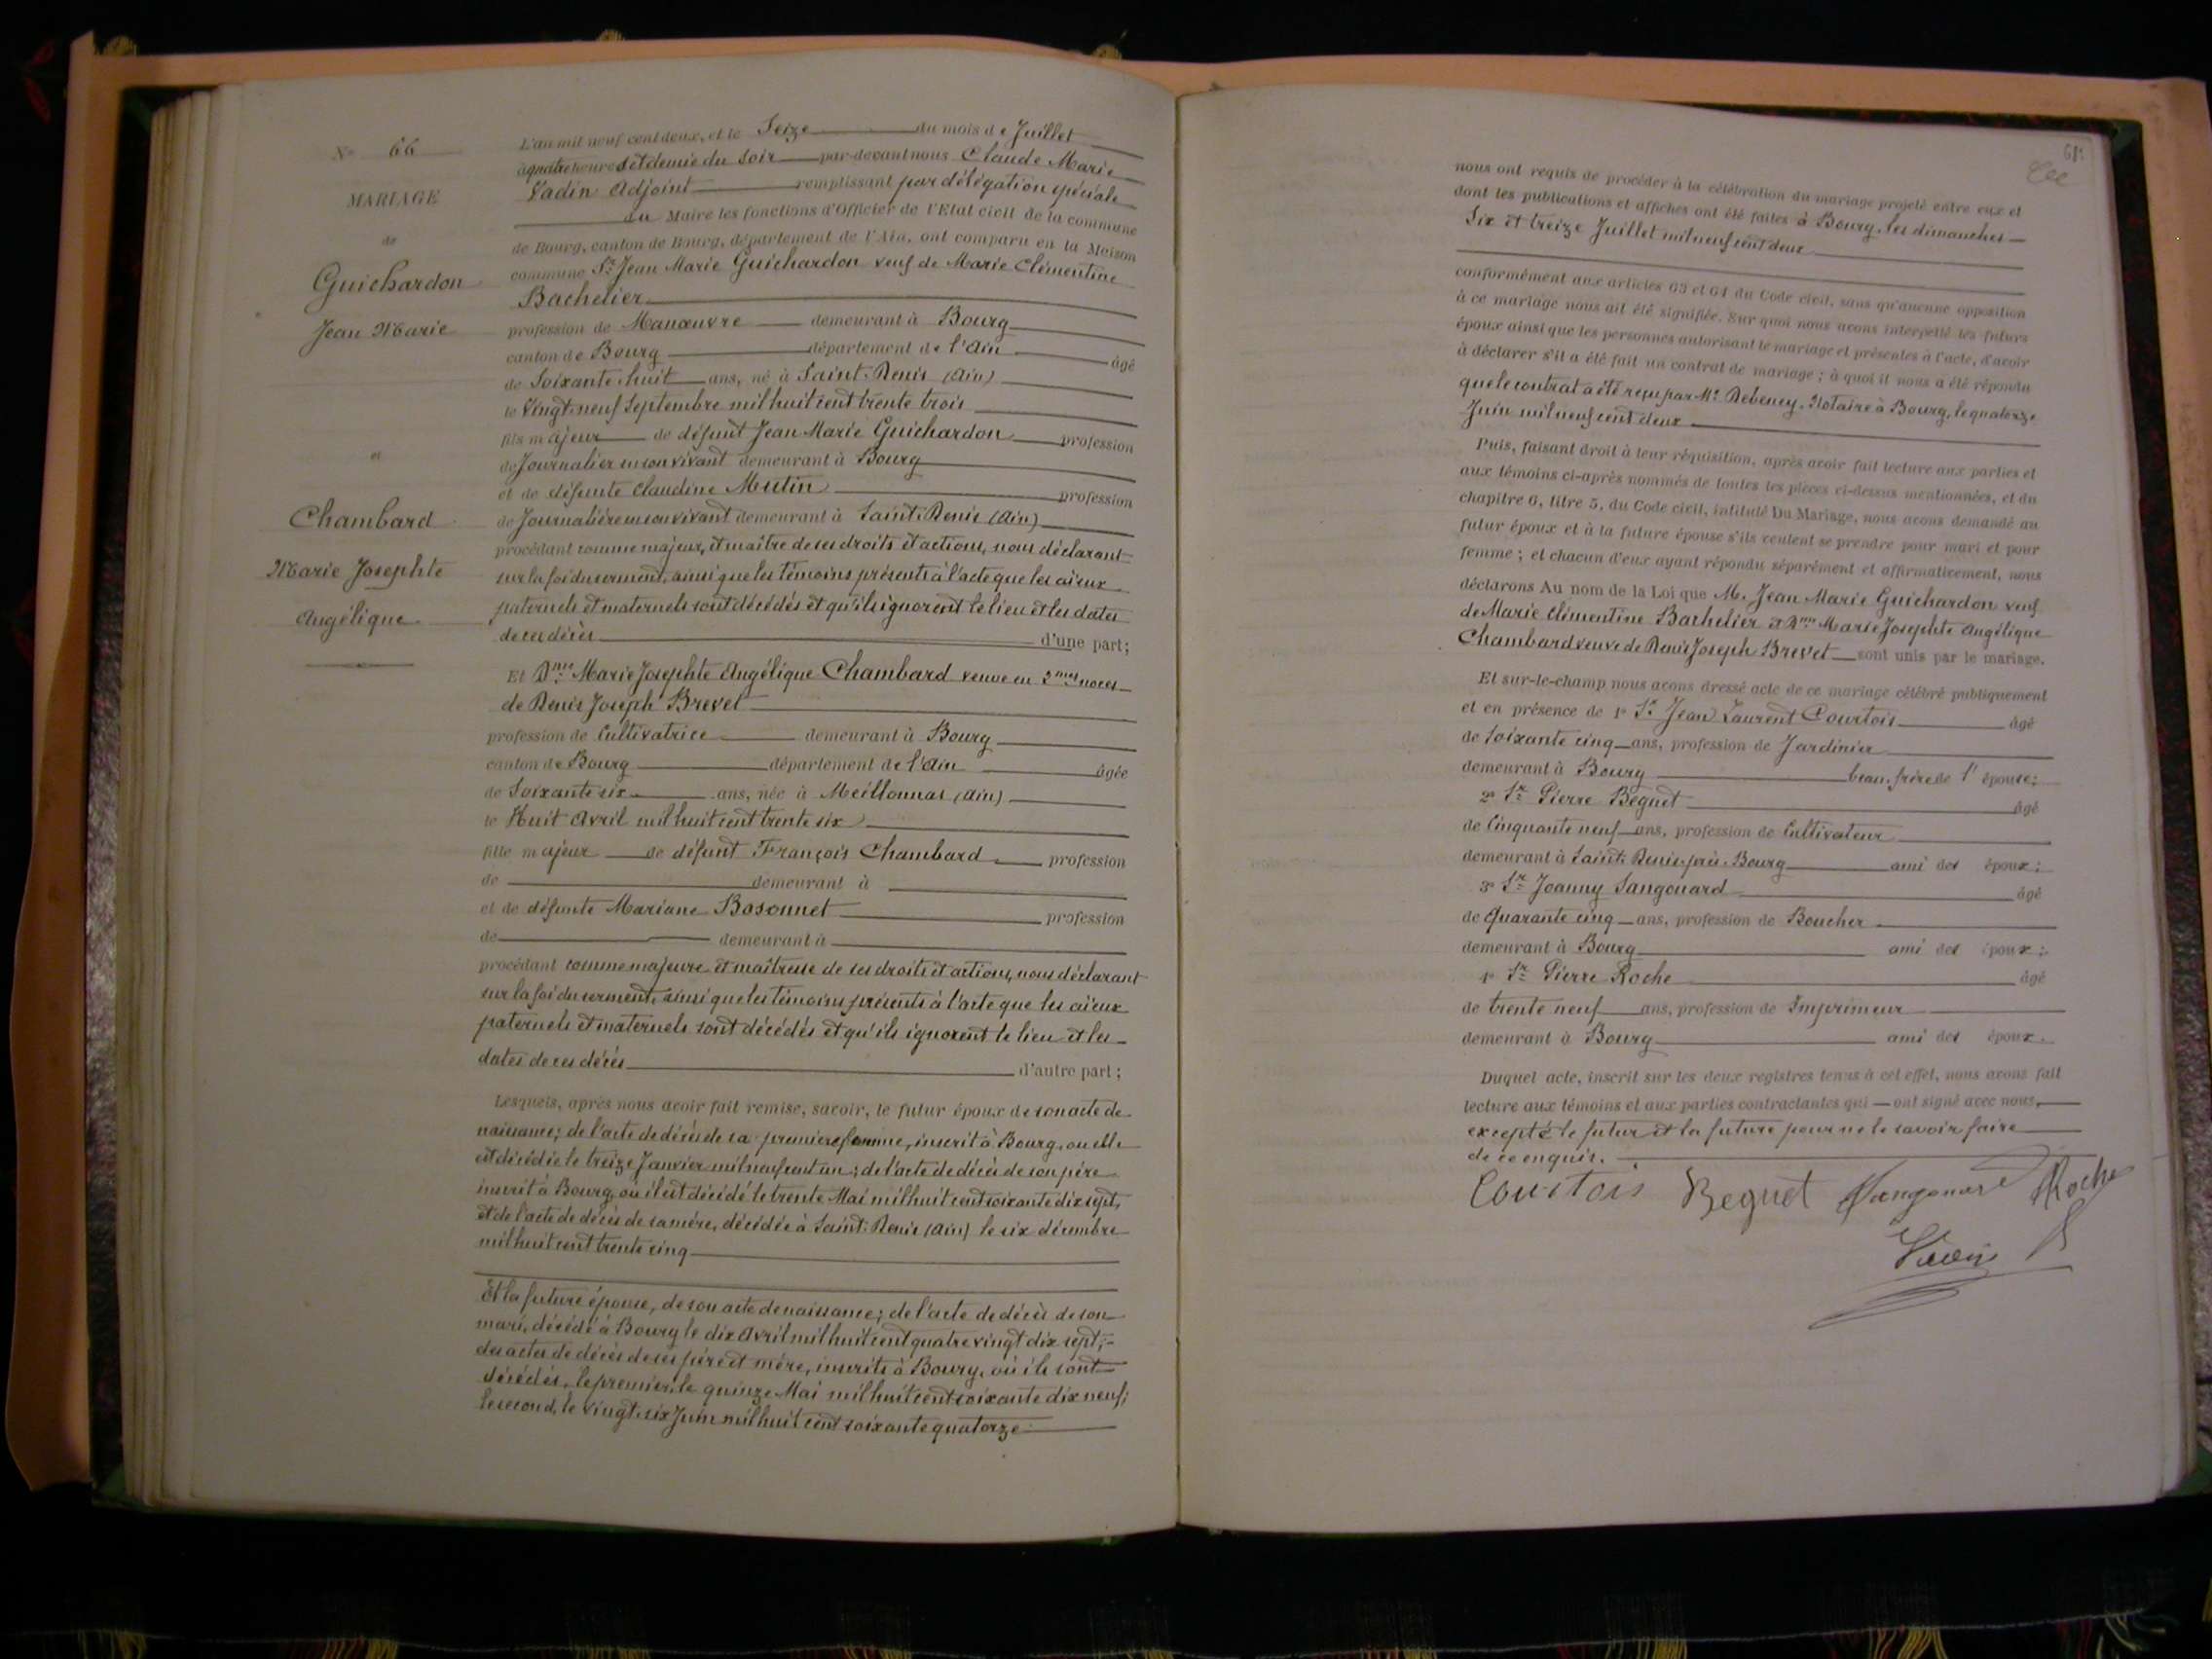 N° 66
MARIAGE
de
Guichardon
Jean Marie
et
Chambard
Marie Josephte
Angélique
L'an mil neuf cent deux, et le Seize du mois de Juillet
à quatre heures et demie du soir par-devant nous Claude Marie
Vadin Adjoint remplissant par délégation spéciale
du Maire les fonctions d'Officier de l'Etat civil de la commune
de Bourg, canton de Bourg, département de l'Ain, ont comparu en la Maison
commune Sr Jean Marie Guichardon veuf de Marie Clémentine
Bachelier
profession de Manœuvre demeurant à Bourg
canton de Bourg département de l'Ain âgé
de Soixante huit ans, né à Saint-Denis (Ain)
le Vingt-neuf Septembre mil huit cent trente trois
fils majeur de défunt Jean Marie Guichardon profession
de Journalier en son vivant demeurant à Bourg
et de défunte Claudine Mutin profession
de Journalière en son vivant demeurant à Saint-Denis (Ain)
procédant comme majeur, et maître de ses droits et actions, nous déclarant
sur la foi du serment, ainsi que les témoins présents à l'acte que les aïeux
paternels et maternels sont décédés et qu'ils ignorent le lieu et les dates
de ces décès d'une part;
Et Dme Marie Josephte Angélique Chambard veuve en 2mes noces
de Denis Joseph Brevet
profession de Cultivatrice demeurant à Bourg
canton de Bourg département de l'Ain âgée
de Soixante six ans, née à Meillonnas (Ain)
le Huit Avril mil huit cent trente six
fille majeur de défunt François Chambard profession
de demeurant à
et de défunte Mariane Bosonnet profession
de demeurant à
procédant comme majeure et maîtresse de ses droits et actions, nous déclarant
sur la foi du serment, ainsi que les témoins présents à l'acte que les aïeux
paternels et maternels sont décédés et qu'ils ignorent le lieu et les
dates de ces décès d'autre part;
Lesquels, après nous avoir fait remise, savoir, le futur époux de son acte de
naissance; de l'acte de décès de sa première femme, inscrit à Bourg, où elle
est décédée le treize Janvier mil neuf cent un; de l'acte de décès de son père
inscrit à Bourg, où il est décédé le trente Mai mil huit cent soixante dix sept,
et de l'acte de décès de sa mère, décédée à Saint-Denis (Ain) le six décembre
mil huit cent trente cinq
Et la future épouse, de son acte de naissance; de l'acte de décès de son
mari, décédé à Bourg le dix Avril mil huit cent quatre vingt dix sept;
des actes de décès de ses père et mère, inscrits à Bourg, où ils sont
décédés, le premier, le quinze Mai mil huit cent soixante dix neuf;
le second, le Vingt-six Juin mil huit cent soixante quatorze
nous ont requis de procéder à la célébration du mariage projeté entre eux et
dont les publications et affiches ont été faites à Bourg, les dimanches
Six et treize Juillet mil neuf cent deux
conformément aux articles 63 et 64 du Code civil, sans qu'aucune opposition
à ce mariage nous ait été signifiée. Sur quoi nous avons interpellé les futurs
époux ainsi que les personnes autorisant le mariage et présentes à l'acte, d'avoir
à déclarer s'il a été fait un contrat de mariage; à quoi il nous a été répondu
que le contrat a été reçu par Me Debeney, Notaire à Bourg, le quatorze
Juin mil neuf cent deux
Puis, faisant droit à leur réquisition, après avoir fait lecture aux parties et
aux témoins ci-après nommés de toutes les pièces ci-dessus mentionnées, et du
chapitre 6, titre 5, du Code civil, intitulé Du Mariage, nous avons demandé au
futur époux et à la future épouse s'ils veulent se prendre pour mari et pour
femme; et chacun d'eux ayant répondu séparément et affirmativement, nous
déclarons Au nom de la Loi que M. Jean Marie Guichardon veuf
de Marie Clémentine Bachelier et Dme Marie Josephte Angélique
Chambard veuve de Denis Joseph Brevet sont unis par le mariage.
Et sur-le-champ nous avons dressé acte de ce mariage célébré publiquement
et en présence de 1° Sr Jean Laurent Courtois âgé
de Soixante cinq ans, profession de Jardinier
demeurant à Bourg beau-frère de l'épouse;
2° Sr Pierre Beguet âgé
de Cinquante neuf ans, profession de Cultivateur
demeurant à Saint-Denis-près-Bourg ami des époux;
3° Sr Joanny Sangouard âgé
de Quarante cinq ans, profession de Boucher
demeurant à Bourg ami des époux;
4° Sr Pierre Roche âgé
de trente neuf ans, profession de Imprimeur
demeurant à Bourg ami des époux.
Duquel acte, inscrit sur les deux registres tenus à cet effet, nous avons fait
lecture aux témoins et aux parties contractantes qui ont signé avec nous,
excepté le futur et la future pour ne le savoir faire
de ce enquis.
Courtois Beguet Sangouard Roche
Vadin